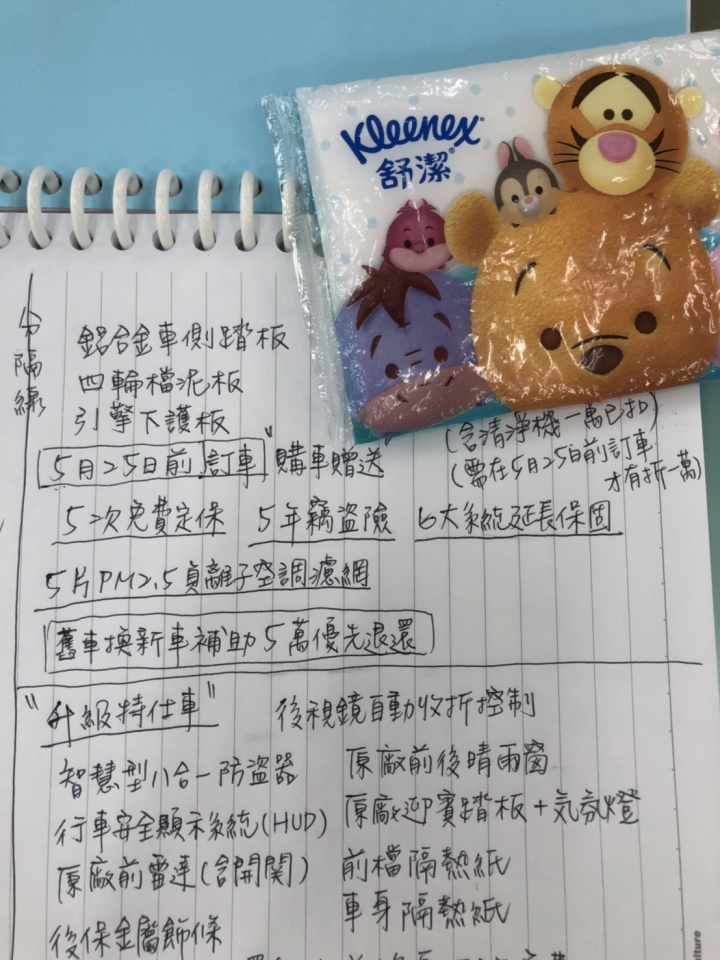 Kleenex
舒潔
分隔線
鋁合金車側踏板
四輪檔泥板
引擎下護板
(含清淨機一萬已扣)
5月25日前訂車 "購車贈送"
(需在5月25日前訂車
才有折一萬)
5次免費定保 5年竊盜險 6大系統延長保固
5片PM2.5負離子空調濾網
舊車換新車補助5萬優先退還
"升級特仕車" 後視鏡自動收折控制
智慧型八合一防盜器 原廠前後晴雨窗
行車安全顯示系統(HUD) 原廠迎賓踏板+氣氛燈
原廠前雷達(含開關) 前檔隔熱紙
後保金屬飾條 車身隔熱紙